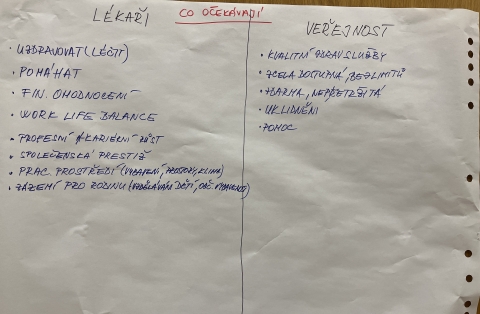 LÉKAŘI
CO OČEKÁVAJÍ
VEŘEJNOST
• UZDRAVOVAT (LÉČIT)
• POMÁHAT
• FIN. OHODNOCENÍ
• WORK LIFE BALANCE
• PROFESNÍ KARIÉRNÍ RŮST
• SPOLEČENSKÁ PRESTIŽ
• PRAC PROSTŘEDÍ (VYBAVENÍ, PROSTORY, KLIMA)
• ZÁZEMÍ PRO RODINU (VZDĚLÁVÁNÍ DĚTÍ, OBČ. VYBAVENOST)
• KVALITNÍ ZDRAV SLUŽBY
• ZCELA DOSTUPNÁ, BEZ LIMITŮ
• ZDARMA, NEPŘETRŽITÁ
• UKLIDNĚNÍ
• POMOC